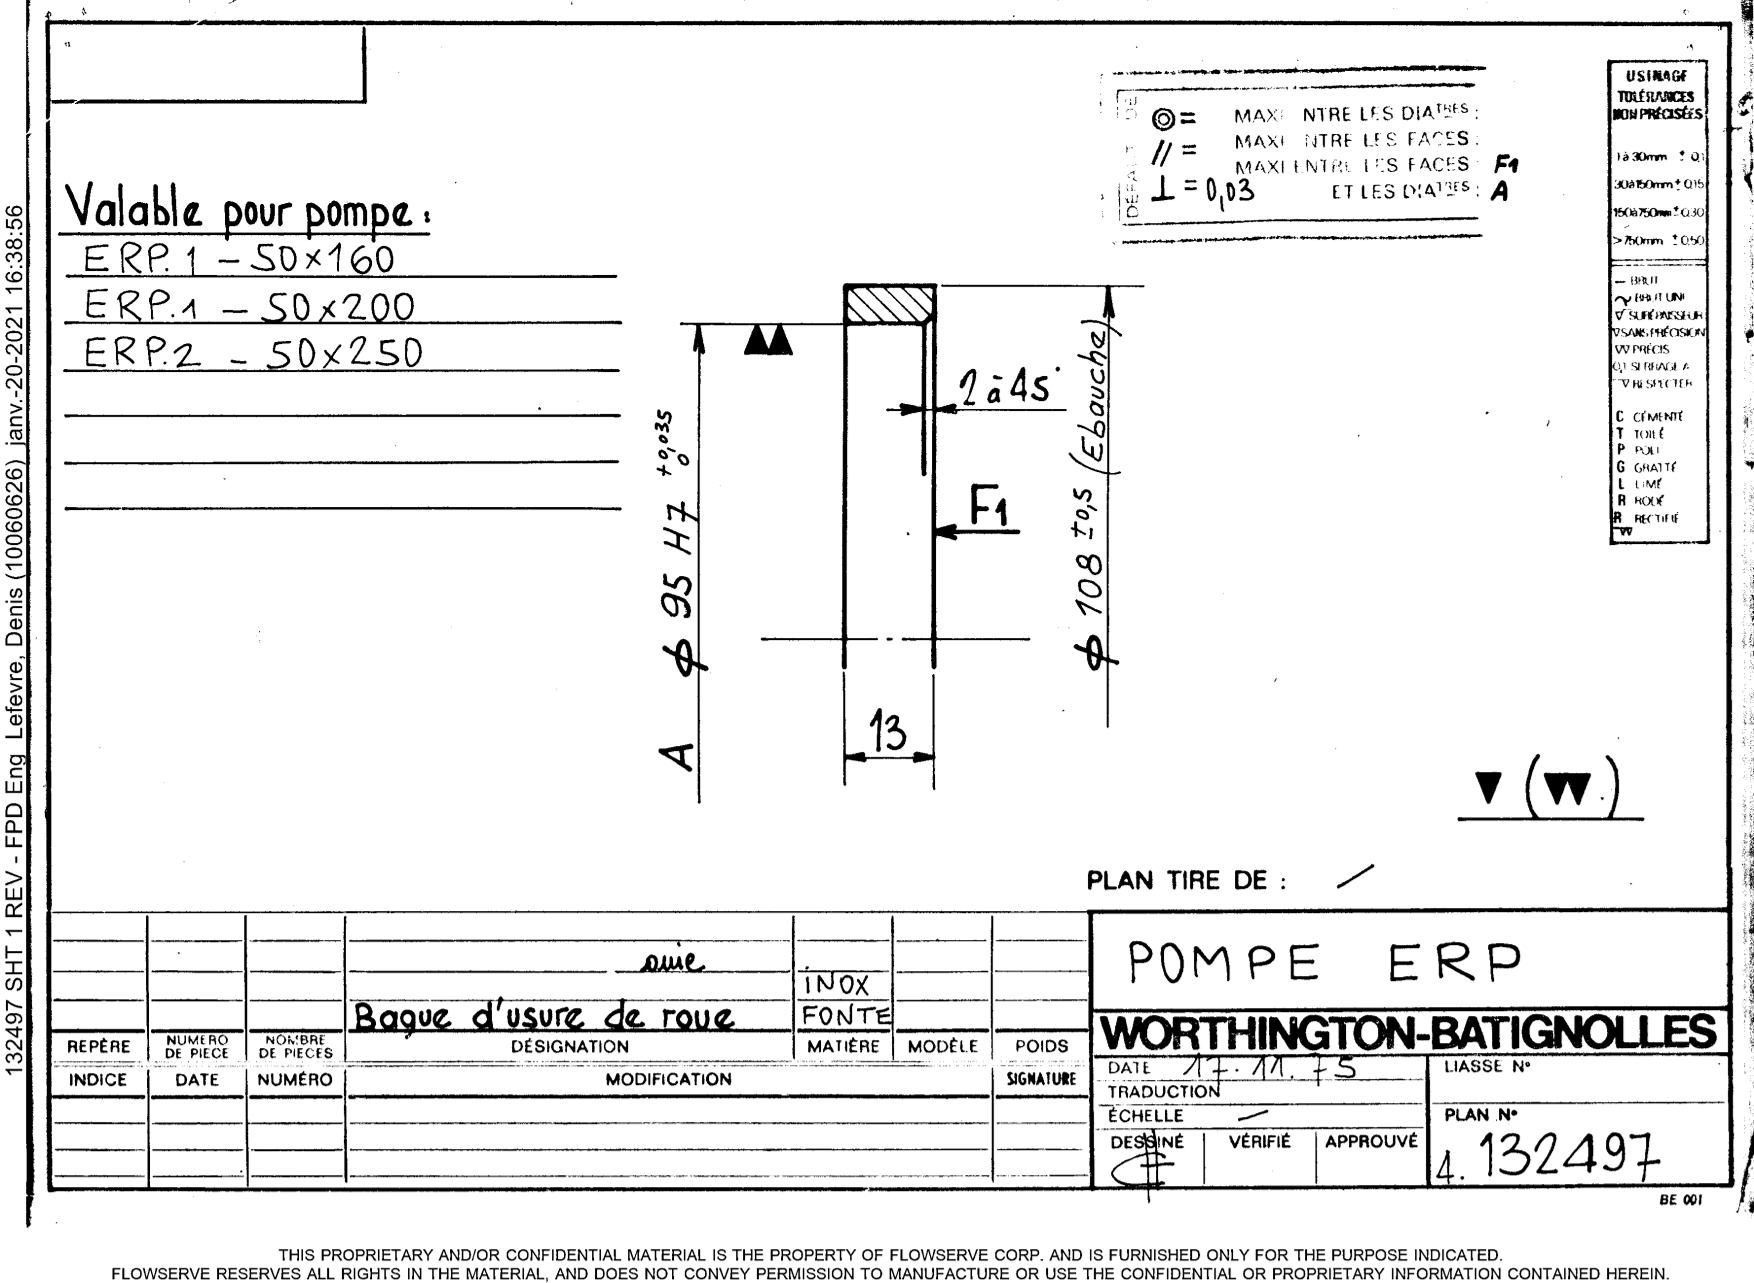 132497 SHT 1 REV - FPD Eng Lefevre, Denis (10060626) janv.-20-2021 16:38:56
Valable pour pompe :
ERP.1 – 50x160
ERP.1 – 50x200
ERP.2 – 50x250
DÉFAUT DE
◎ = MAXI NTRE LES DIATRES :
// = MAXI NTRE LES FACES :
MAXI ENTRE LES FACES : F1
⊥ = 0,03 ET LES DIATRES : A
USINAGE
TOLÉRANCES
NON PRÉCISÉES
1 à 30mm ± 0,1
30 à 150mm ± 0,15
150 à 750mm ± 0,30
> 750mm ± 0,50
— BRUT
~ BRUT UNI
∇ SURÉPAISSEUR
∇ SANS PRÉCISION
∇∇ PRÉCIS
0,1 SERRAGE A
∇ RESPECTER
C CÉMENTÉ
T TOILÉ
P POLI
G GRATTÉ
L LIMÉ
R RODÉ
R RECTIFIÉ
∇∇
▲▲
2 à 45°
A ϕ 95 H7 +0,035 0
F1
ϕ 108 ±0,5 (Ebauche)
13
▼ (▼▼)
PLAN TIRE DE : /
ouie
INOX
Bague d'usure de roue FONTE
REPÈRE NUMERO DE PIECE NOMBRE DE PIECES DÉSIGNATION MATIÈRE MODÈLE POIDS
INDICE DATE NUMÉRO MODIFICATION SIGNATURE
POMPE ERP
WORTHINGTON-BATIGNOLLES
DATE 17.11.75
TRADUCTION
ÉCHELLE —
DESSINÉ VÉRIFIÉ APPROUVÉ
LIASSE N°
PLAN N°
4. 132497
BE 001
THIS PROPRIETARY AND/OR CONFIDENTIAL MATERIAL IS THE PROPERTY OF FLOWSERVE CORP. AND IS FURNISHED ONLY FOR THE PURPOSE INDICATED.
FLOWSERVE RESERVES ALL RIGHTS IN THE MATERIAL, AND DOES NOT CONVEY PERMISSION TO MANUFACTURE OR USE THE CONFIDENTIAL OR PROPRIETARY INFORMATION CONTAINED HEREIN.